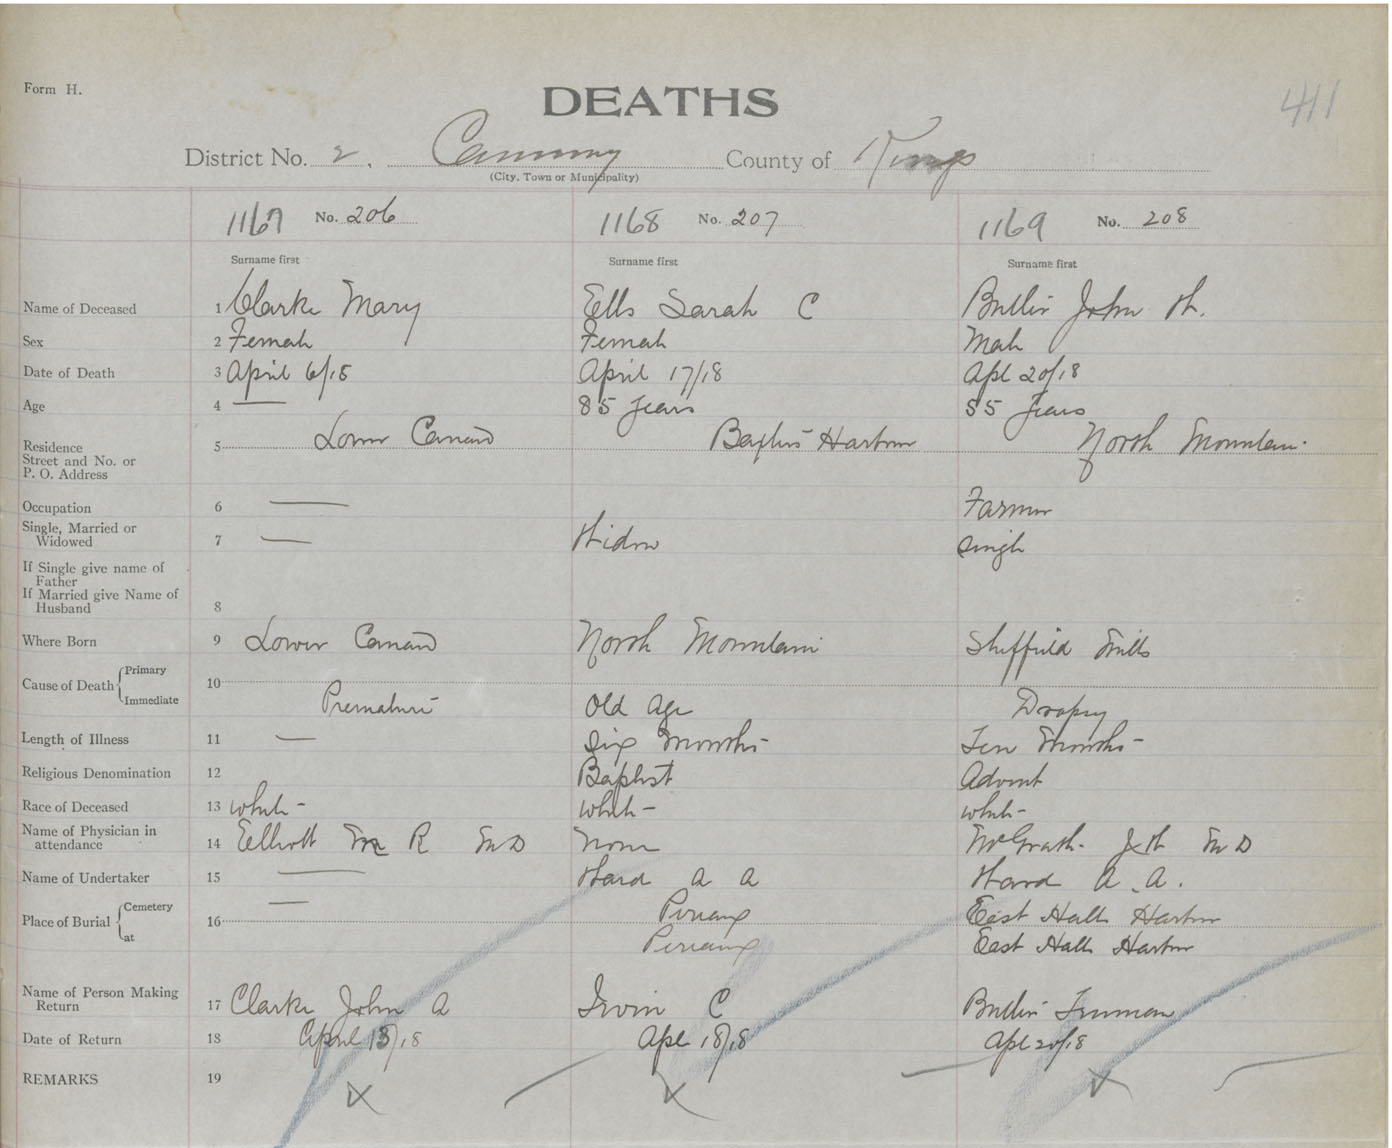 Form H.
DEATHS
411
District No. 2. Canning County of Kings
(City, Town or Municipality)
1167 No. 206 1168 No. 207 1169 No. 208
Surname first Surname first Surname first
Name of Deceased 1 Clarke Mary Ells Sarah C John H.
Sex 2 Female Female Male
Date of Death 3 April 6/18 April 17/18 Apl 20/18
Age 4 — 85 Years 55 Years
Residence
Street and No. or
P. O. Address 5 Lower Canard Baxters Harbour North Mountain
Occupation 6 — Farmer
Single, Married or
Widowed 7 — Widow Single
If Single give name of
Father
If Married give Name of
Husband 8
Where Born 9 Lower Canard North Mountain Sheffield Mills
Cause of Death { Primary
Immediate 10 Premature Old Age Dropsy
Length of Illness 11 — Six Months Ten Months
Religious Denomination 12 Baptist Advent
Race of Deceased 13 White White White
Name of Physician in
attendance 14 Elliott M R M D None McGrath J H M D
Name of Undertaker 15 — Ward A A Ward A. A.
Place of Burial { Cemetery 16 — Pereaux East Halls Harbour
at Pereaux East Halls Harbour
Name of Person Making
Return 17 Clarke John A Irvin C
Date of Return 18 April 18/18 Apl 18/18 Apl 20/18
REMARKS 19 X X X